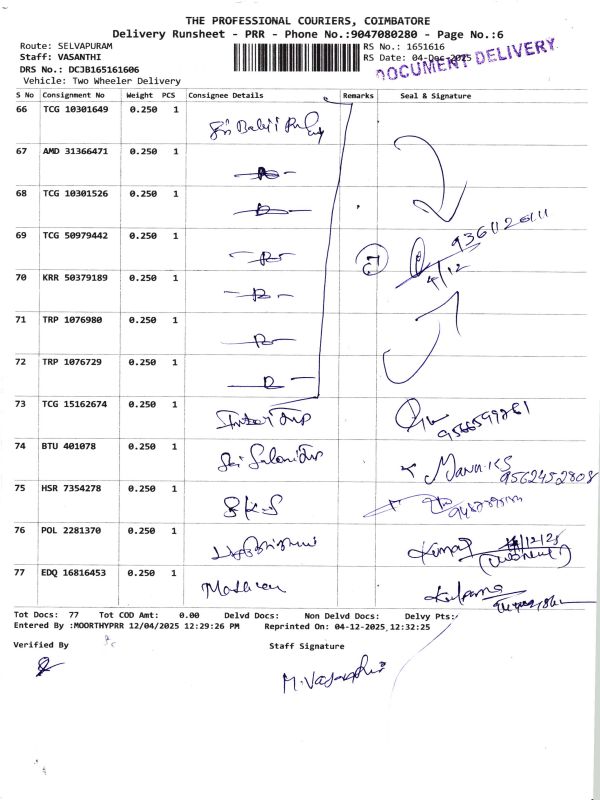 THE PROFESSIONAL COURIERS, COIMBATORE
Delivery Runsheet - PRR - Phone No.:9047080280 - Page No.:6
Route: SELVAPURAM
RS No.: 1651616
Staff: VASANTHI
RS Date: 04-Dec-2025
DOCUMENT DELIVERY
DRS No.: DCJB165161606
Vehicle: Two Wheeler Delivery
S No Consignment No Weight PCS Consignee Details Remarks Seal & Signature
66 TCG 10301649 0.250 1
67 AMD 31366471 0.250 1
68 TCG 10301526 0.250 1
69 TCG 50979442 0.250 1
9361126111
4/12
70 KRR 50379189 0.250 1
71 TRP 1076980 0.250 1
72 TRP 1076729 0.250 1
73 TCG 15162674 0.250 1
9566599261
74 BTU 401078 0.250 1
9562452808
75 HSR 7354278 0.250 1 SKS
76 POL 2281370 0.250 1 Kumar
77 EDQ 16816453 0.250 1 Kalpana
Tot Docs: 77 Tot COD Amt: 0.00 Delvd Docs: Non Delvd Docs: Delvy Pts:
Entered By :MOORTHYPRR 12/04/2025 12:29:26 PM Reprinted On: 04-12-2025,12:32:25
Verified By Staff Signature
M.Vasanthi